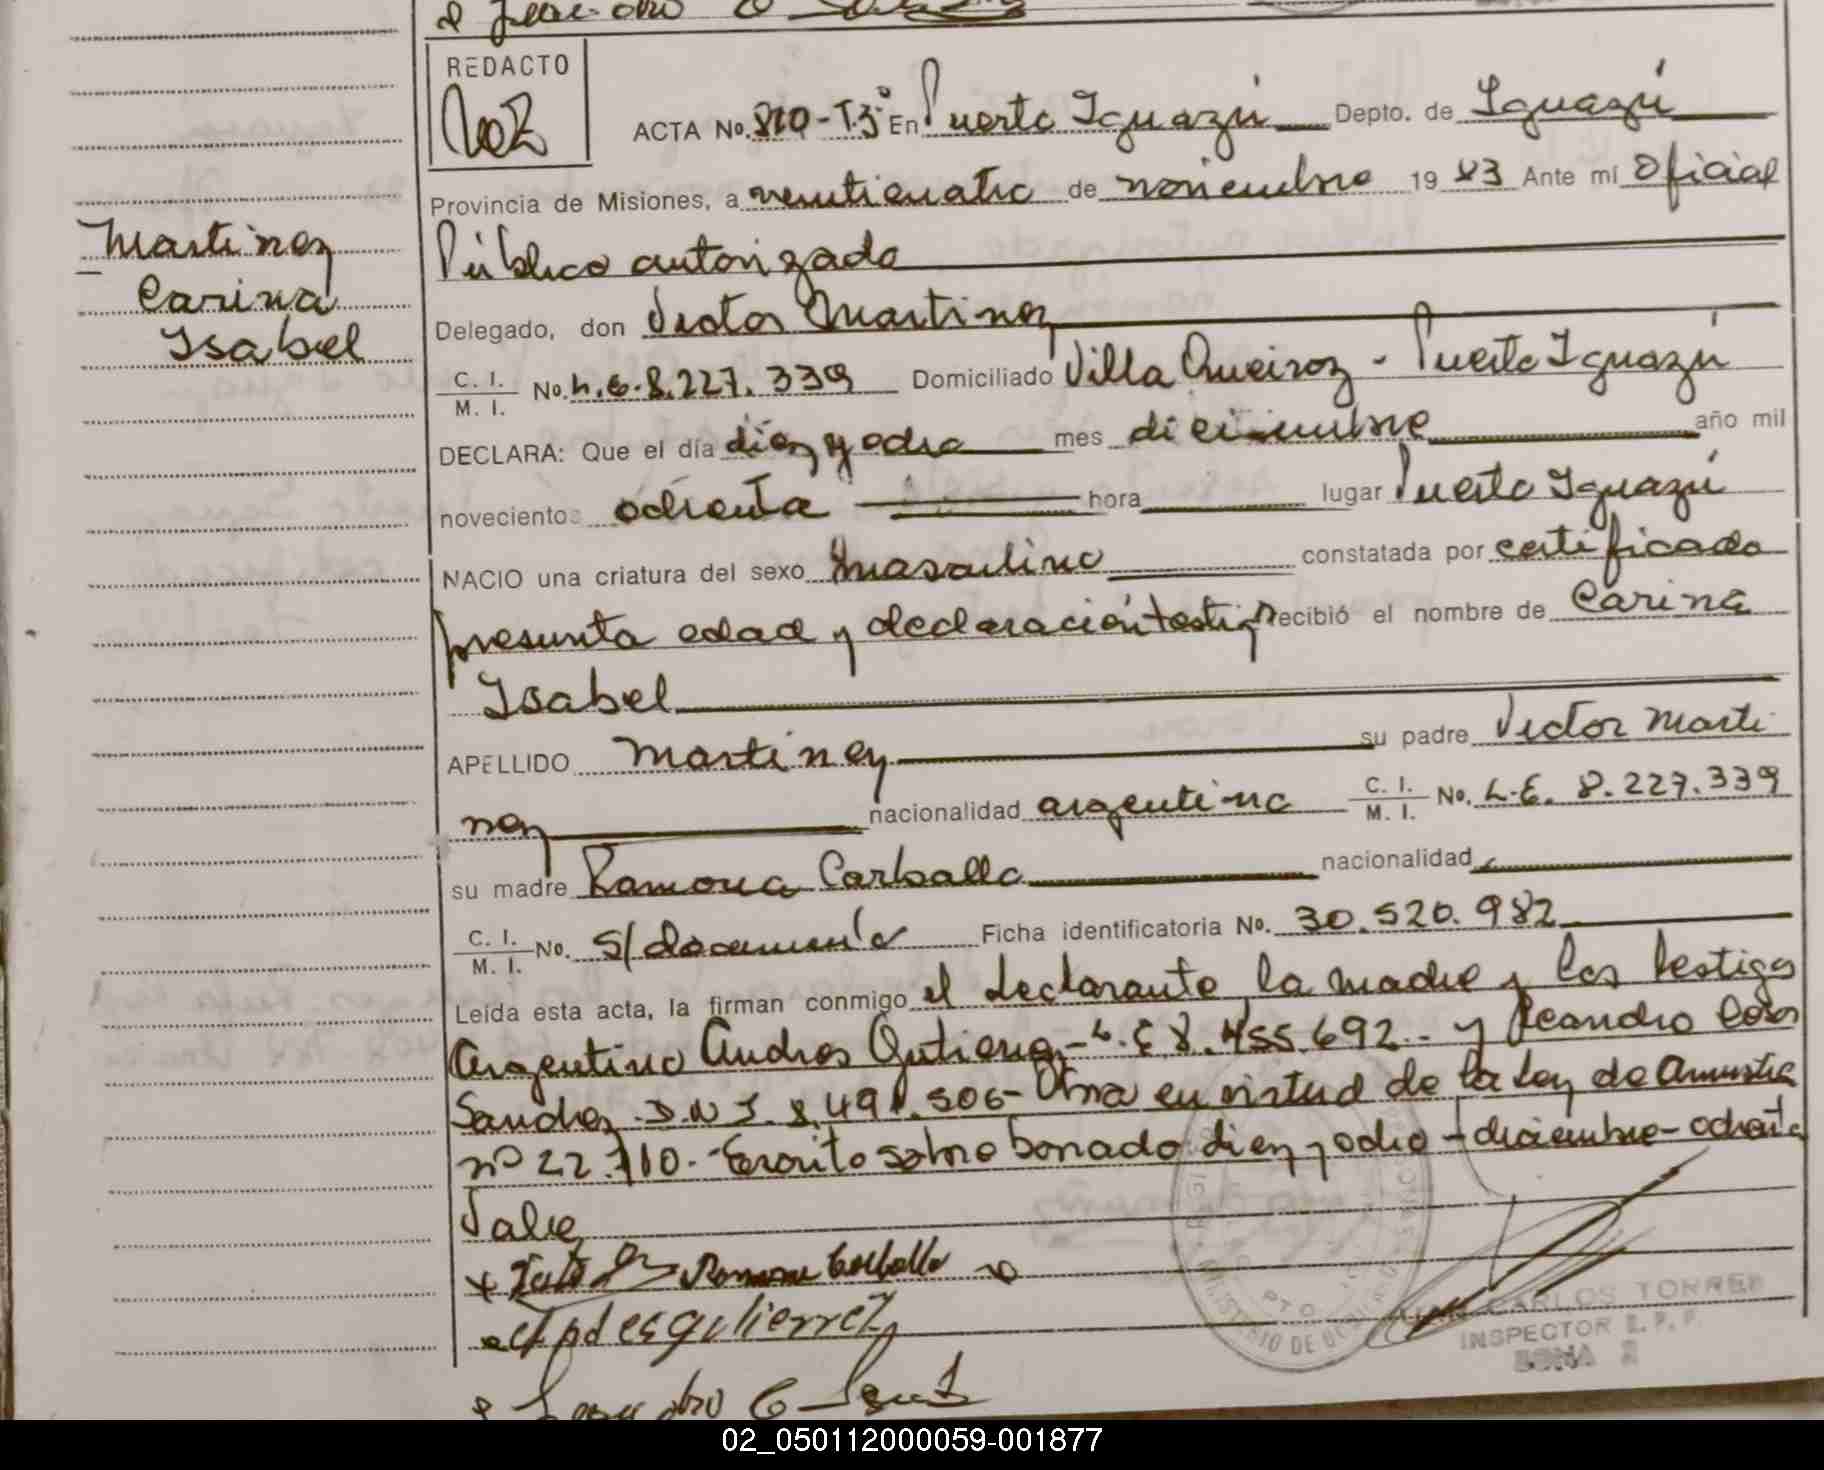 REDACTO
ACTA No. 810-T.3º En Puerto Iguazú Depto. de Iguazú
Provincia de Misiones, a veinticuatro de noviembre 19 83 Ante mí Oficial
Público autorizado
Martinez
Carina
Isabel
Delegado, don Victor Martinez
C. I. M. I. No. L.E. 8.227.339 Domiciliado Villa Queiroz - Puerto Iguazú
DECLARA: Que el día diez y ocho mes diciembre año mil
novecientos ochenta hora lugar Puerto Iguazú
NACIO una criatura del sexo masculino constatada por certificado
presunta edad y declaración testig recibió el nombre de Carina
Isabel
APELLIDO Martinez su padre Victor Marti
nez nacionalidad argentino C. I. M. I. No. L.E. 8.227.339
su madre Ramona Carballo nacionalidad
C. I. M. I. No. s/documento Ficha identificatoria No. 30.520.982
Leída esta acta, la firman conmigo el declarante, la madre y los testigos
Argentino Andres Gutierrez - L.E 8.455.692 - y Leandro
Sanchez D.N.I. 8.491.506 - en virtud de la Ley de Amnistia
nº 22.710.- Escrito sobre borrado diez y ocho - diciembre - ochenta
Vale
Ramona Carballo
Andres gutierrez
CARLOS TORRES
INSPECTOR
ZONA 2
02_050112000059-001877